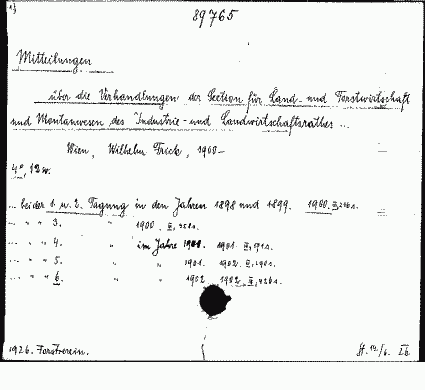 89765
Mitteilungen
über die Verhandlungen der Section für Land- und Forstwirtschaft
und Montanwesen des Industrie- und Landwirtschaftsrathes ...
Wien, Wilhelm Frick, 1900-
4°, 12 w.
... bei der 1. u. 2. Tagung in den Jahren 1898 und 1899. 1900. II,
... " " 3. " 1900. II,
... " " 4. " im Jahre 1901. 1901. II,
... " " 5. " " 1901. 1902. II,
... " " 6. " " 1902. 1902. II,
1926. Forstverein.